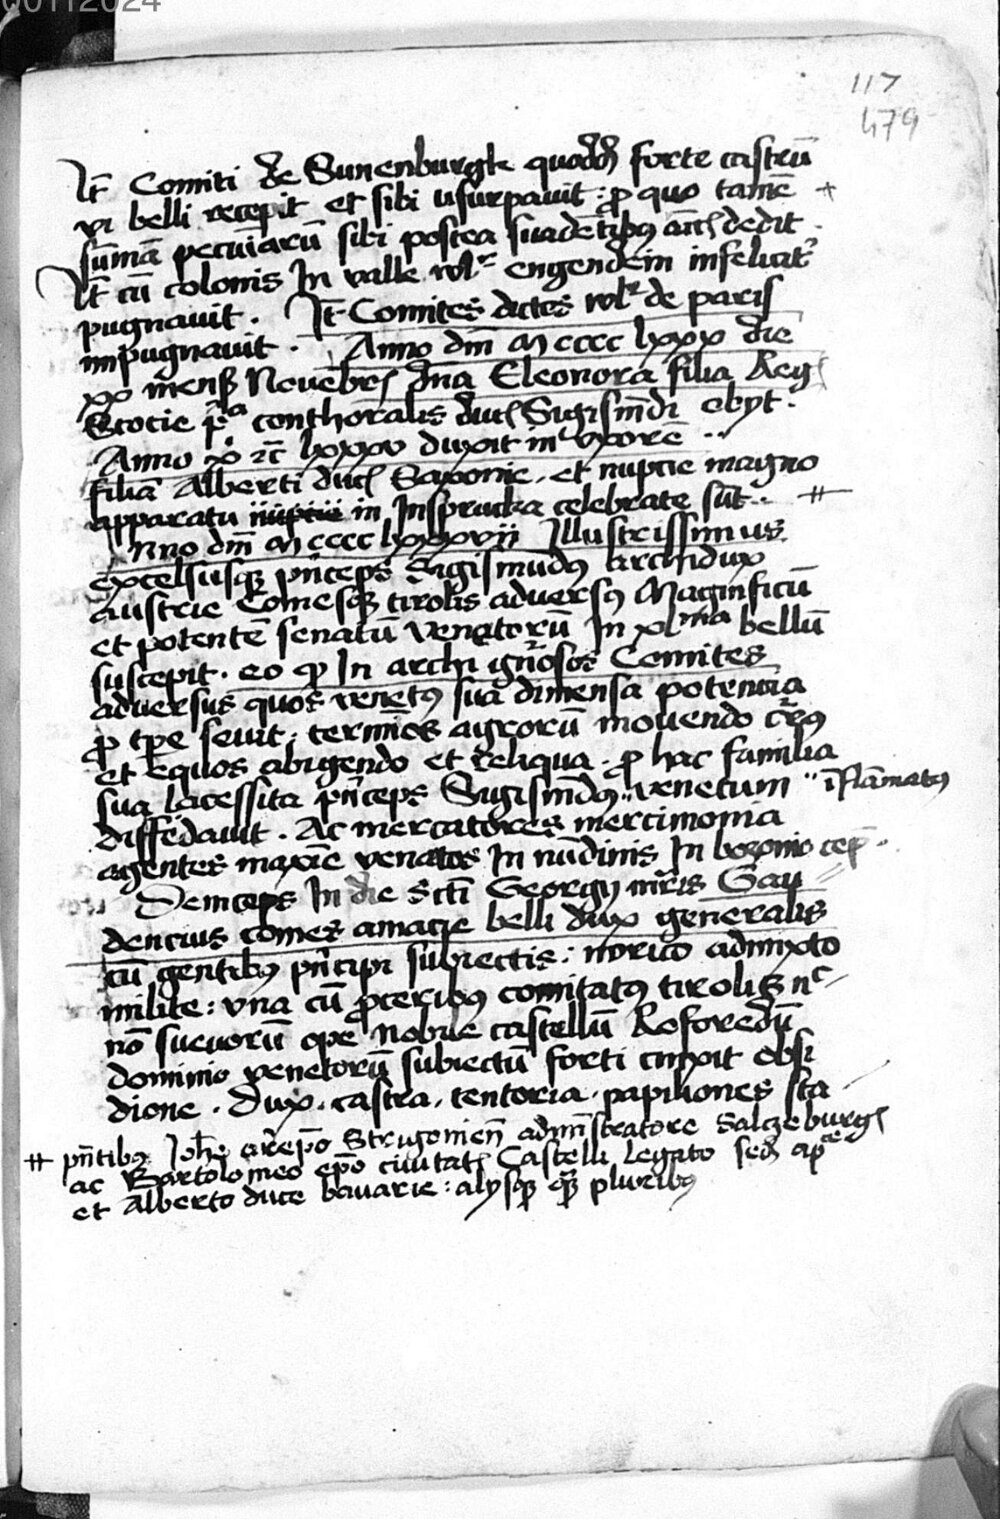 00112024
117
479
Itē Comiti de Sunenburgk quoddā forte castrū
vi belli recepit et sibi usurpavit : ꝓ quo tamē +
sūmā pecuniarū sibi postea suadētibꝰ dedit .
Itē cū colonis In valle vlꝰ engendein infelicitꝰ
pugnavit . Itē Comites dictos vlꝰ de paris
impugnavit . Anno dm̄ M cccc lxxx die
xx mensꝭ Novēbrꝭ dn̄a Eleonora filia Regꝭ
Scotie pͥa conthoralis ducꝭ Sigismūdi obyt .
Anno lxxxv duxit in vxorē ..
filiā Alberti ducꝭ Saxonie . et nuptie magno
apparatu nuptie in Inspruka celebrate sūt .. #
Anno dm̄ M cccc lxxxvii Illustrissimus
excelsusqꝫ pn̄ceps Sigismūdꝰ Archidux
Austrie Comesqꝫ tirolis adversꝰ Magnificū
et potentē senatū Venetorū In xlma bellū
suscepit . eo ꝙ In archi Comites
adversus quos venetꝰ sua dimensa potentia
ꝓ tp̄e sevit . terminos agrorū movendo
et equos abigendo et reliqua . ꝓ hac familia
sua lacessita pn̄ceps Sigismūdꝰ " venetum " īflāmatꝰ
diffēdavit . Ac mercatores mercimonia
agentes maxīe venetos In nūdinis In bozonio cep̄ .
Deinceps In die scti Georgy mr̄is Gau
dencius comes amacie belli dux generalis
cū gentibꝰ pn̄cipi subiectis : norico admixto
milite : vna cū ꝓceribꝰ comitatꝰ tirolis nc
nō suevorū ope nobile castellū Roforedū
dominio venetorū subiectū forti cinxit obsi
dione . dux . castra . tentoria . papiliones sta
# pn̄tibꝰ Joh̄e arep̄o Strugonien̄ admīstratore Salczeburgꝭ
ac Bartolomeo ep̄o civitatꝭ Castelli Legato sed ap̄ce
et Alberto duce bavarie : alysqꝫ qꝫ pluribꝰ